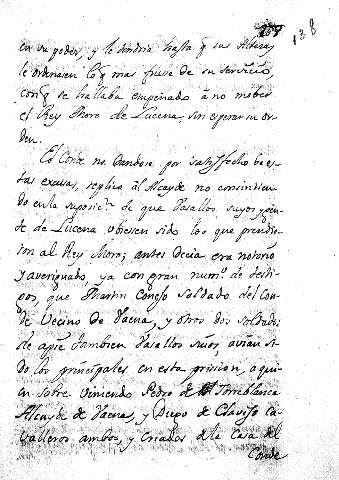 138
en su poder, y le tendria hasta q sus Altezas
le ordenasen lo q mas fuese de su servicio,
con q se hallaba empeñado â no mober
el Rey Moro de Lucena, sin esperar su or
den.
El Conde no dandose por satisfecho de es
tas excusas, replica al Alcayde no consintien
do en la suposic.n de que Vasallos suyos y gen
te de Lucena ubiesen sido los que prendie
ron al Rey Moro; antes decia era notorio
y averiguado ya con gran num.o de testi
gos, que Martin Conejo soldado del Con
de Vecino de Vaena, y otros dos soldados
de apie tambien Vasallos suios, avian si
do los principales en esta prision, a qui
en sobre viniendo Pedro de Torreblanca
Alcayde de Vaena, y Diego de Clavijo Ca
valleros ambos, y criados de la Casa del
Conde